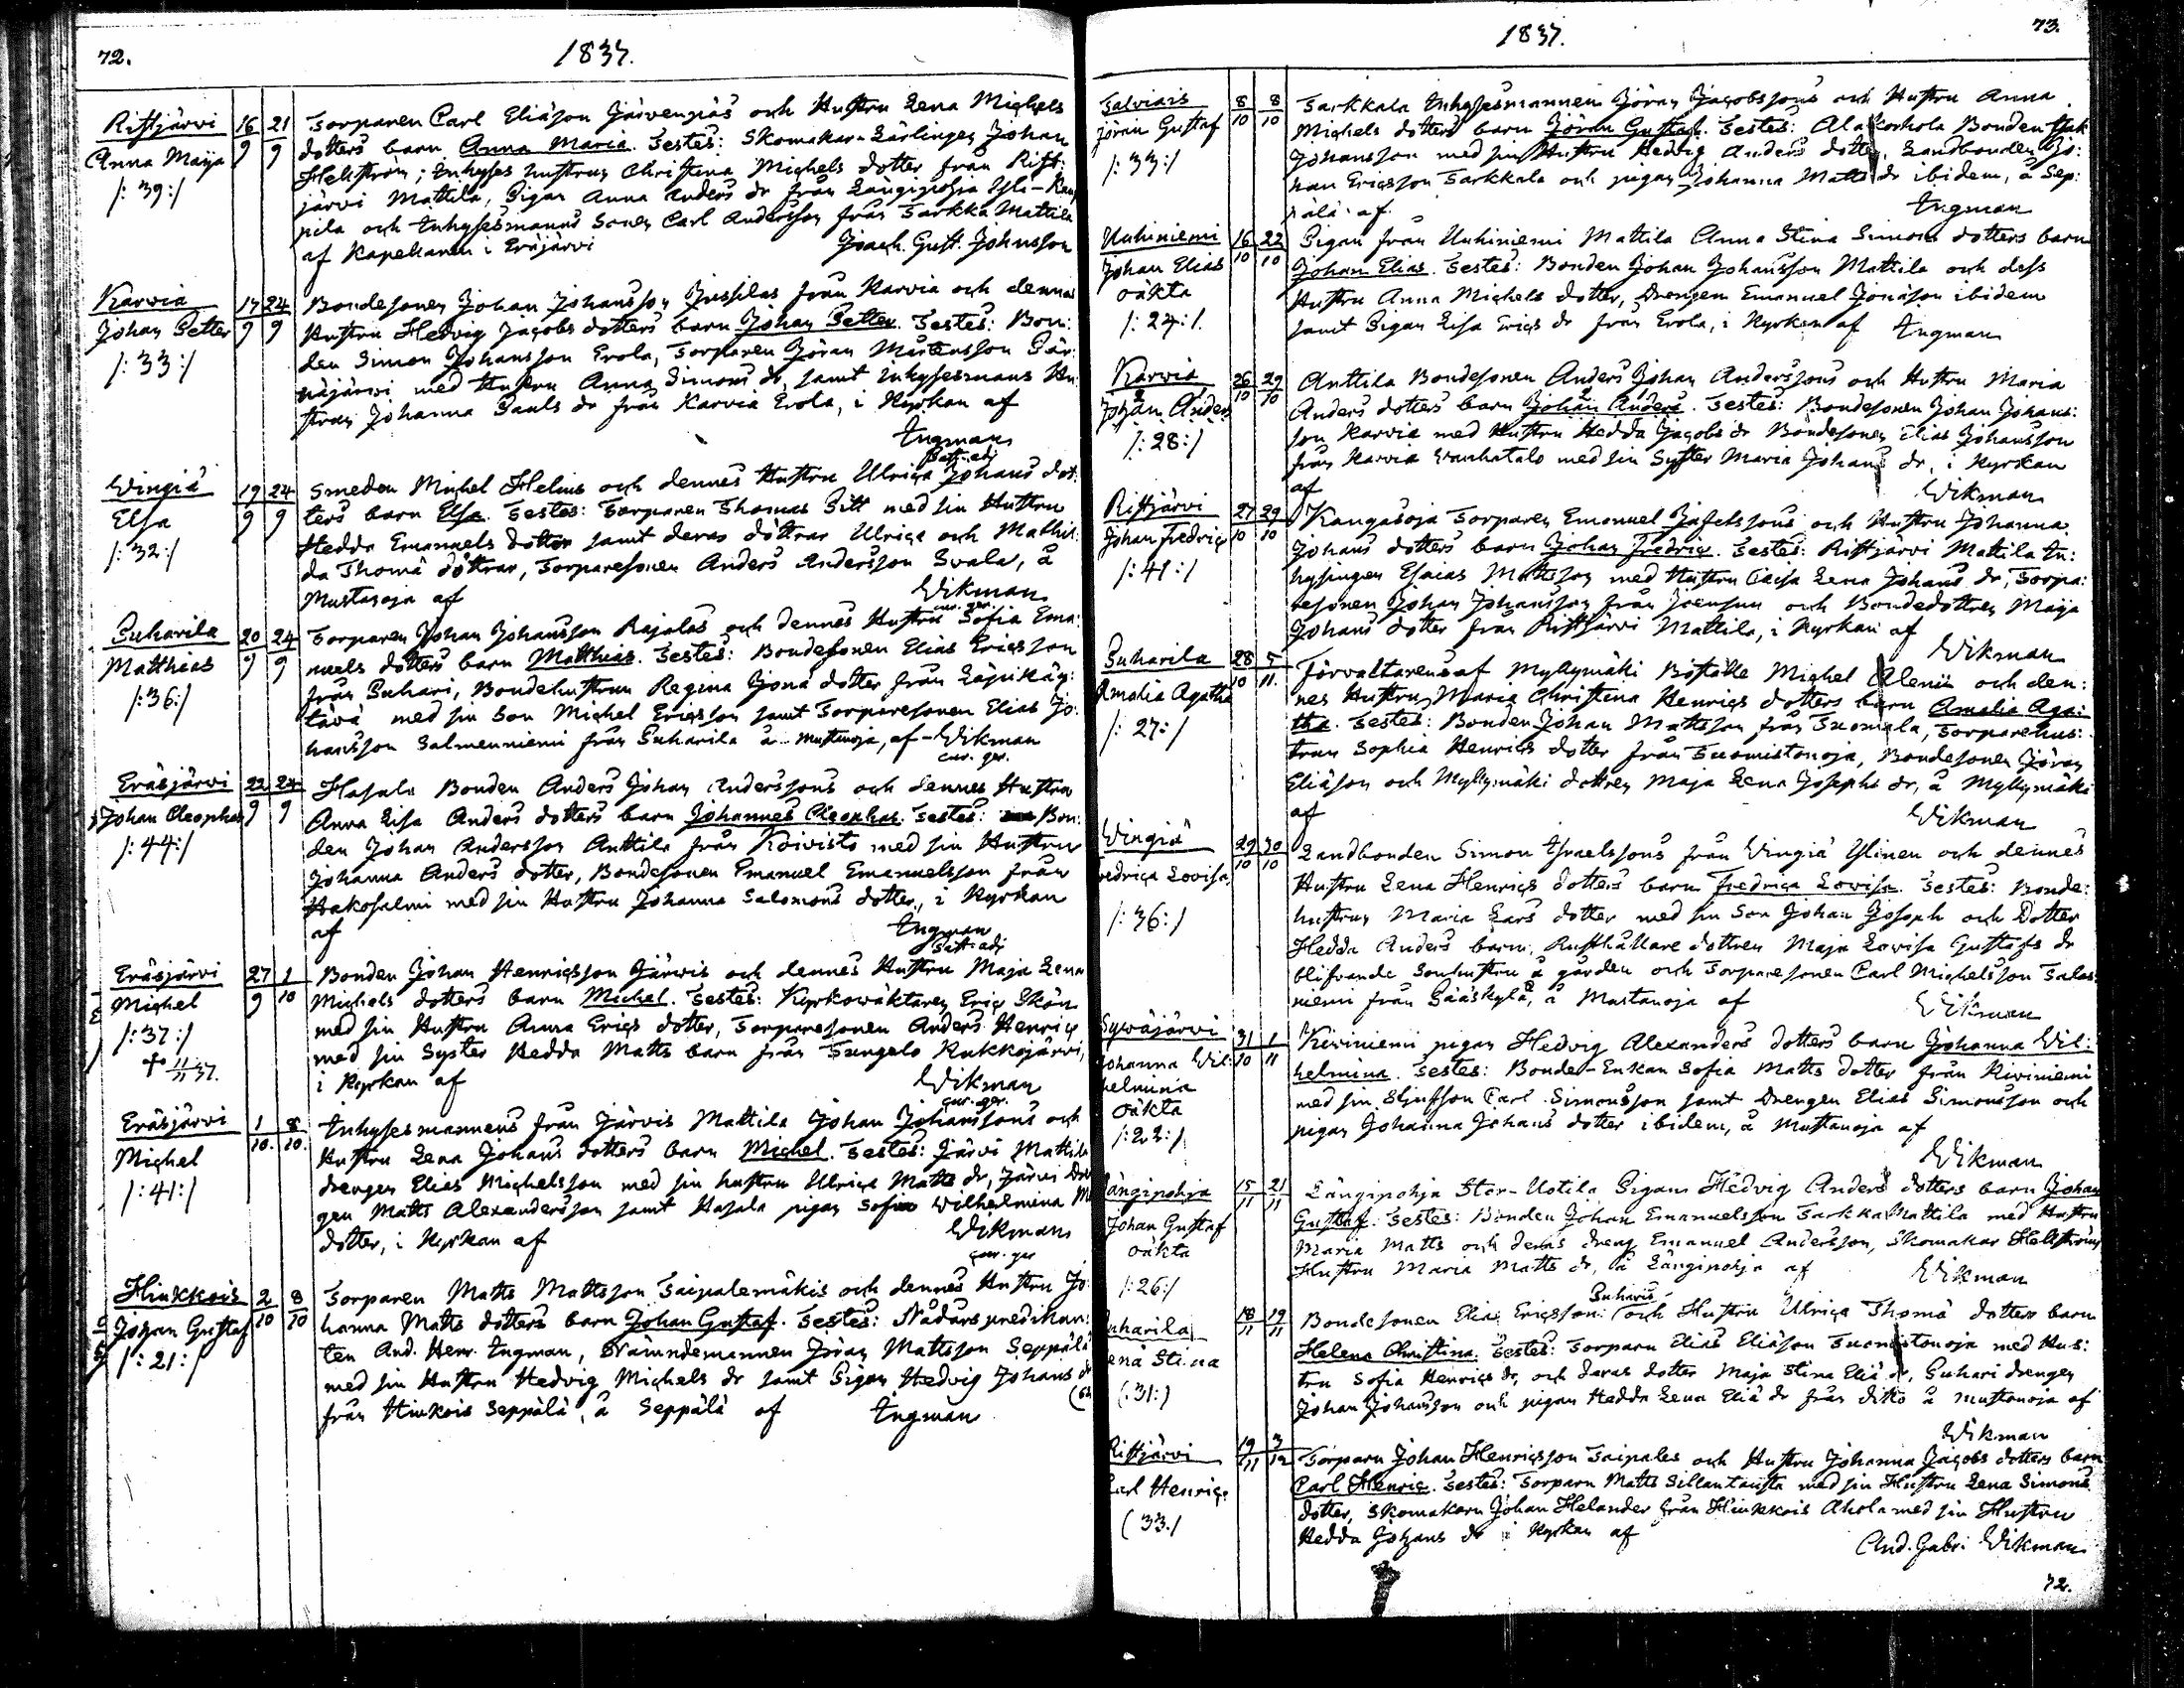 72.
1837.
Ristjärvi 16/9 21/9 Torparen Carl Eliäson Järvenpääs och Hustru Lena Michels
Anna Maija dotters barn Anna Maria. Testes: Skomakar-Lärlingen Johan
/: 39:/ Hellström; Inhyses hustrun Christina Michels dotter från Rist:
järvi Mattila, Pigan Anna Anders dr från Längipohja Yli-
pila och Inhysesmanns Sonen Carl Andersson från Sarkka Mattila
af Kapellanen i Eräjärvi Joach. Gust. Johnsson
Karvia 17/9 24/9 Bondesonen Johan Johansson Jussilas från Karvia och dennes
Johan Petter Hustru Hedvig Jacobs dotters barn Johan Petter. Testes: Bon:
/: 33:/ den Simon Johansson Erola, Torparen Jöran Mårtensson Pär:
näjärvi med Hustru Anna Simons dr, samt Inhysesmans Hu:
strun Johanna Pauls dr från Karvia Erola, i Kyrkan af
Ingman
Past. adj
Wingiä 19/9 24/9 Smeden Michel Helius och dennes Hustru Ulrica Johans dot:
Elsa ters barn Elsa. Testes: Torparen Thomas Pitt med sin Hustru
/: 32:/ Hedda Emanuels dotter samt deras döttrar Ulrica och Mathil:
da Thomä döttrar, Torparesonen Anders Andersson Svala, å
Mustanoja af Wikman
cur. ger.
Puharila 20/9 24/9 Torparen Johan Johansson Rajalas och dennes Hustru Sofia Ema:
Matthias nuels dotters barn Matthias. Testes: Bondesonen Elias Ericsson
/: 36:/ från Puhari, Bondehustrun Regina Jona dotter från Läpikäy:
tävä med sin Son Michel Ericsson samt Torparesonen Elias Jo:
hansson Salmenniemi från Puharila å Mustanoja, af Wikman
cur. ger.
Eräsjärvi 22/9 24/9 Hasala Bonden Anders Johan Anderssons och dennes Hustru
Johan Cleophas Anna Lisa Anders dotters barn Johannes Cleophas. Testes: Bon:
/: 44:/ den Johan Andersson Anttila från Koivisto med sin Hustru
Johanna Anders dotter, Bondesonen Emanuel Emanuelsson från
Hakosalmi med sin Hustru Johanna Salomons dotter, i Kyrkan
af Ingman
Past. adj
Eräsjärvi 27/9 1/10 Bonden Johan Henricsson Järvis och dennes Hustru Maja Lena
Michel Michels dotters barn Michel. Testes: Kyrkowäktaren Eric Skön
/: 37:/ med sin Hustru Anna Erics dotter, Torparesonen Anders Henric
+ 11/11 37. med sin Syster Hedda Matts barn från Kukkojärvi,
i Kyrkan af Wikman
cur. ger.
Eräsjärvi 1/10. 8/10. Inhysesmannens från Järvis Mattila Johan Johanssons och
Michel Hustru Lena Johans dotters barn Michel. Testes: Järvi Mattila
/: 41:/ drengen Elias Michelsson med sin hustru Ulrica Matts dr, Järvi Dren
gen Matts Alexandersson samt Hasala pigan Sofia Wilhelmina
dotter, i Kyrkan af Wikman
cur. ger
Hinkkois 2/10 8/10 Torparen Matts Mattsson Taipalemäkis och dennes Hustru Jo:
Johan Gustaf hanna Matts dotters barn Johan Gustaf. Testes: Nådårspredikan:
/: 21:/ ten And. Henr. Ingman, Nämndemannen Jöran Mattsson Seppälä
med sin Hustru Hedvig Michels dr samt Pigan Hedvig Johans dr
från Hinkois Seppälä, å Seppälä af Ingman
73.
1837.
Talviais 8/10 8/10 Sarkkala Inhysesmannen Jöran Jacobssons och Hustru Anna
Jöran Gustaf Michels dotters barn Jöran Gustaf. Testes: Ala Bonden Isak
/: 33:/ Johansson med sin Hustru Hedvig Anders dotter, Landbonden Jo:
han Ericsson Sarkkala och pigan Johanna Matts dr ibidem, å Sep:
pälä af Ingman
Uuhiniemi 16/10 22/10 Pigan från Uuhiniemi Mattila Anna Stina Simons dotters barn
Johan Elias Johan Elias. Testes: Bonden Johan Johansson Mattila och dess
oäkta Hustru Anna Michels dotter, Drengen Emanuel Jonäson ibidem
/: 24:/. samt Pigan Lisa Erics dr från Erola, i Kyrkan af Ingman
Karvia 26/10 29/10 Anttila Bondesonen Anders Johan Anderssons och Hustru Maria
Johan Anders Anders dotters barn Johan Anders. Testes: Bondesonen Johan Johans:
/: 28:/ son Karvia med Hustru Hedda Jacobs dr Bondesonen Elias Johansson
från Karvia Wanhatalo med sin Syster Maria Johans dr, i Kyrkan
af Wikman
Ristjärvi 27/10 29/10 Kangasoja Torparen Emanuel Jafetssons och Hustru Johanna
Johan Fredric Johans dotters barn Johan Fredric. Testes: Ristjärvi Mattila In:
/: 41:/ hysingen Esaias Mattsson med Hustru Caisa Lena Johans dr, Torpa:
resonen Johan Johansson från Joensuu och Bondedottren Maija
Johans dotter från Ristjärvi Mattila, i Kyrkan af
Wikman
Puharila 28/10 5/11. Förvaltarens af Myllymäki Boställe Michel Alenii och den:
Amalia Agatha nes Hustru Maria Christina Henrics dotters barn Amalia Aga:
/: 27:/ tha. Testes: Bonden Johan Mattsson från Suomela, Torparehus:
trun Sophia Henrics dotter från Suomistonoja, Bondesonen Jöran
Eliäson och Myllymäki dottren Maja Lena Josephs dr, å Myllymäki
af Wikman
Wingiä 29/10 30/10 Landbonden Simon Israelssons från Wingiä Ylinen och dennes
redrica Lovisa, Hustru Lena Henrics dotters barn Fredrica Lovisa. Testes: Bonde:
/: 36:/ hustrun Maria Lars dotter med sin Son Johan Joseph och Dotter
Hedda Anders barn, Rusthållare dottren Maja Lovisa Gustafs dr
blifvande Sonhustru å gården och Torparesonen Carl Michelsson Salos
niemi från Sääskylä, å Mustanoja af
Wikman
Sywäjärvi 31/10 1/11 Kiviniemi pigan Hedvig Alexanders dotters barn Johanna Wil:
Johanna Wil: helmina. Testes: Bonde-Enkan Sofia Matts dotter från Kiviniemi
helmina med sin Stjufson Carl Simonsson samt Drengen Elias Simonsson och
oäkta pigan Johanna Johans dotter ibidem, å Mustanoja af
/: 22:/ Wikman
ängipohja 15/11 21/11 Längipohja Stor-Uotila Pigans Hedvig Anders dotters barn Johan
Johan Gustaf Gustaf. Testes: Bonden Johan Emanuelsson Sarkka Mattila med Hustru
oäkta Maria Matts och deras dreng Emanuel Andersson, Skomakar Hellströms
/: 26:/ Hustru Maria Matts dr, å Längipohja af Wikman
Puharis
uharila 18/11 19/11 Bondesonen Elias Ericsson och Hustru Ulrica Thomä dotters barn
ena Stina Helena Christina. Testes: Torparn Elias Eliäson Suomistonoja med Hus:
(:31:) tru Sofia Henrics dr, och deras dotter Maja Stina Eliä dr, Puhari drengen
Johan Johansson och pigan Hedda Lena Eliä dr från ditto å Mustanoja af
Wikman
Ristjärvi 19/11 3/12 Torparn Johan Henricsson Taipales och Hustru Johanna Jacobs dotters barn
Carl Henric. Carl Henric. Testes: Torparn Matts Sillantausta med sin Hustru Lena Simons
(33:/ dotter, Skomakarn Johan Helander från Hinkkois Ahola med sin Hustru
Hedda Johans dr i Kyrkan af
And. Gabr. Wikman
72.